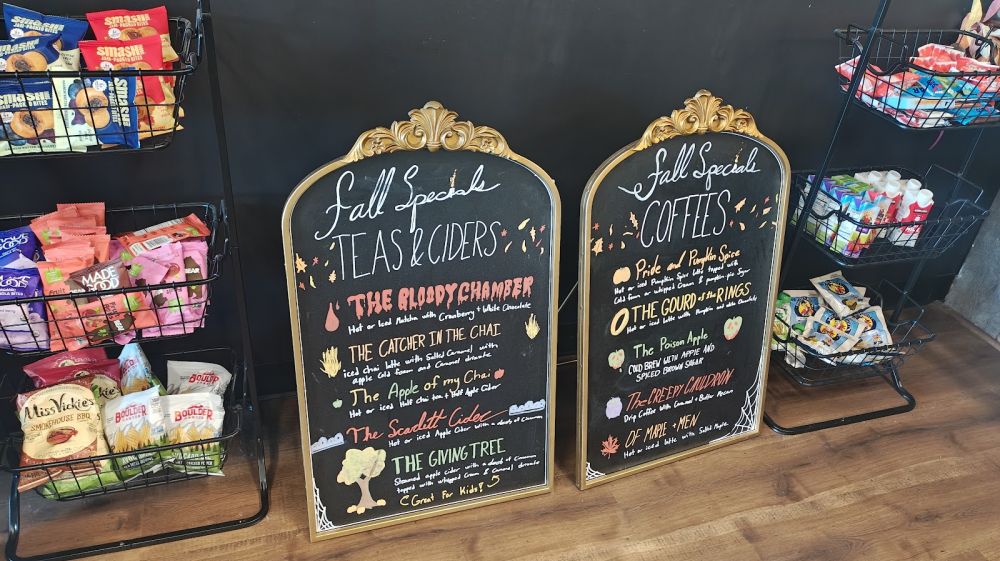 SMASH
JAM-PACKED BITES
SMASH
SMASH
MADE
GOOD
Miss Vickie's
SMOKEHOUSE BBQ
BOULDER
CANYON
BOULDER
BOULDER
Fall Specials
TEAS & CIDERS
THE BLOODY CHAMBER
Hot or iced Matcha with Cranberry + White Chocolate
THE CATCHER IN THE CHAI
iced chai latte with Salted Caramel with
apple Cold Foam and Caramel drizzle
The Apple of my Chai
Hot or iced Half chai tea + Half Apple Cider
The Scarlett Cider
Hot or iced Apple Cider with a dash of Cinnamon
THE GIVING TREE
Steamed apple cider with a dash of Cinnamon
topped with whipped Cream & Caramel drizzle
Great For Kids!
Fall Specials
COFFEES
Pride and Pumpkin Spice
Hot or iced Pumpkin Spice latte topped with
Cold foam or whipped Cream & pumpkin pie Sugar
THE GOURD of the RINGS
Hot or iced latte with Pumpkin and white Chocolate
The Poison Apple
COLD BREW WITH APPLE AND
SPICED BROWN SUGAR
The CREEPY CAULDRON
Drip Coffee with Caramel + Butter Pecan
OF MAPLE + MEN
Hot or iced latte with Salted Maple